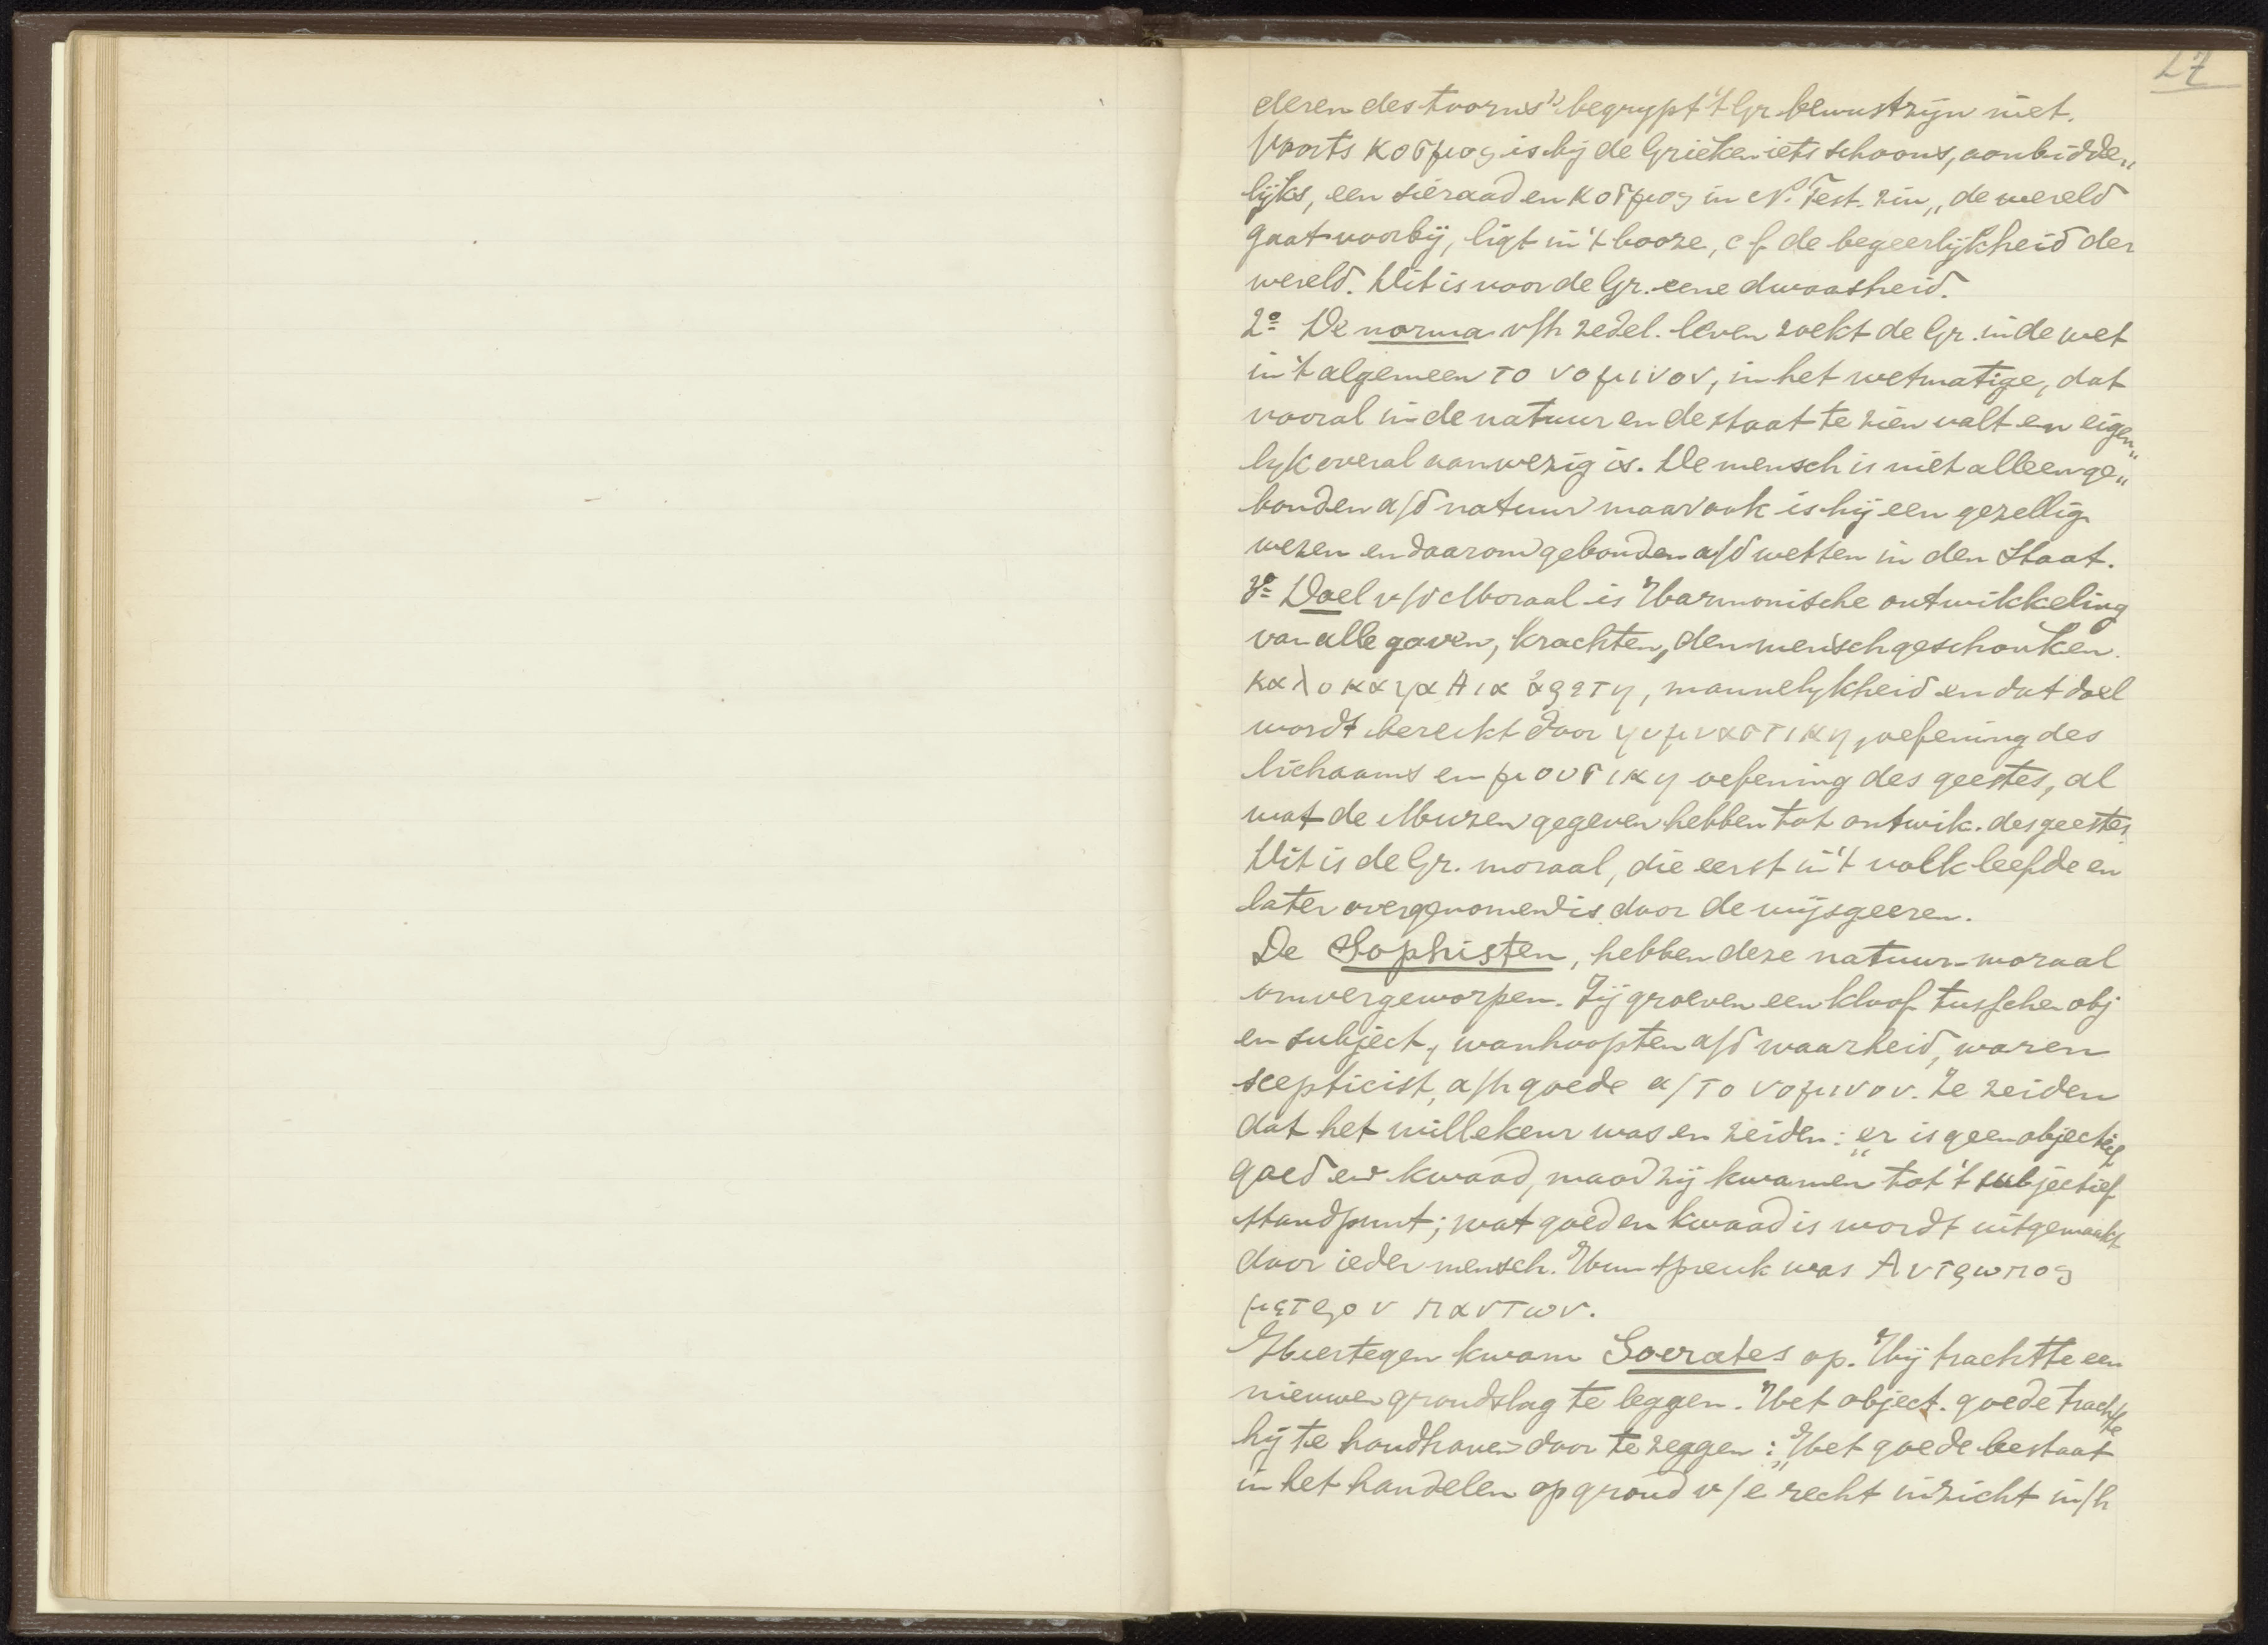 27
deren des toorns" begrypt 't Gr. bewustzijn niet.
Voorts κοσμος is bij de Grieken iets schoons, aanbidde„
lijks, een sieraad en κοσμος in N. Test. zin „de wereld
gaat voorbij, ligt in 't booze, cf de begeerlijkheid der
wereld. Dit is voor de Gr. eene dwaasheid.
2º De norma v/h zedel. leven zoekt de Gr. in de wet
in 't algemeen το νομινον, in het wetmatige, dat
vooral in de natuur en de staat te zien valt en eigen„
lyk overal aanwezig is. De mensch is niet alleen ge„
bonden a/d natuur maar ook is hij een gezellig
wezen en daarom gebonden a/d wetten in den Staat.
3º Doel v/d Moraal is Harmonische ontwikkeling
van alle gaven, krachten, den mensch geschonken.
καλοκαγαθια ἀρετη, mannelykheid en dat doel
wordt bereikt door γυμναστικη, oefening des
lichaams en μουσικη oefening des geestes, al
wat de Muzen gegeven hebben tot ontwik. des geestes.
Dit is de Gr. moraal, die eerst in 't volk leefde en
later overgenomen is door de wijsgeeren.
De Sophisten, hebben deze natuur-moraal
omvergeworpen. Zij groeven een kloof tusschen obj
en subject, wanhoopten a/d waarheid, waren
scepticist, a/h goede a/το νομινον. Ze zeiden
dat het willekeur was en zeiden: „er is geen objectief
goed en kwaad, maar zij kwamen tot 't subjectief
standpunt; wat goed en kwaad is wordt uitgemaakt
door ieder mensch. Hun spreuk was Αντρωπος
μετρον παντων.
Hiertegen kwam Socrates op. Hij trachtte een
nieuwen grondslag te leggen. Het object. goede trachtte
hij te handhaven door te zeggen: „Het goede bestaat
in het handelen op grond v/e recht inzicht in/h